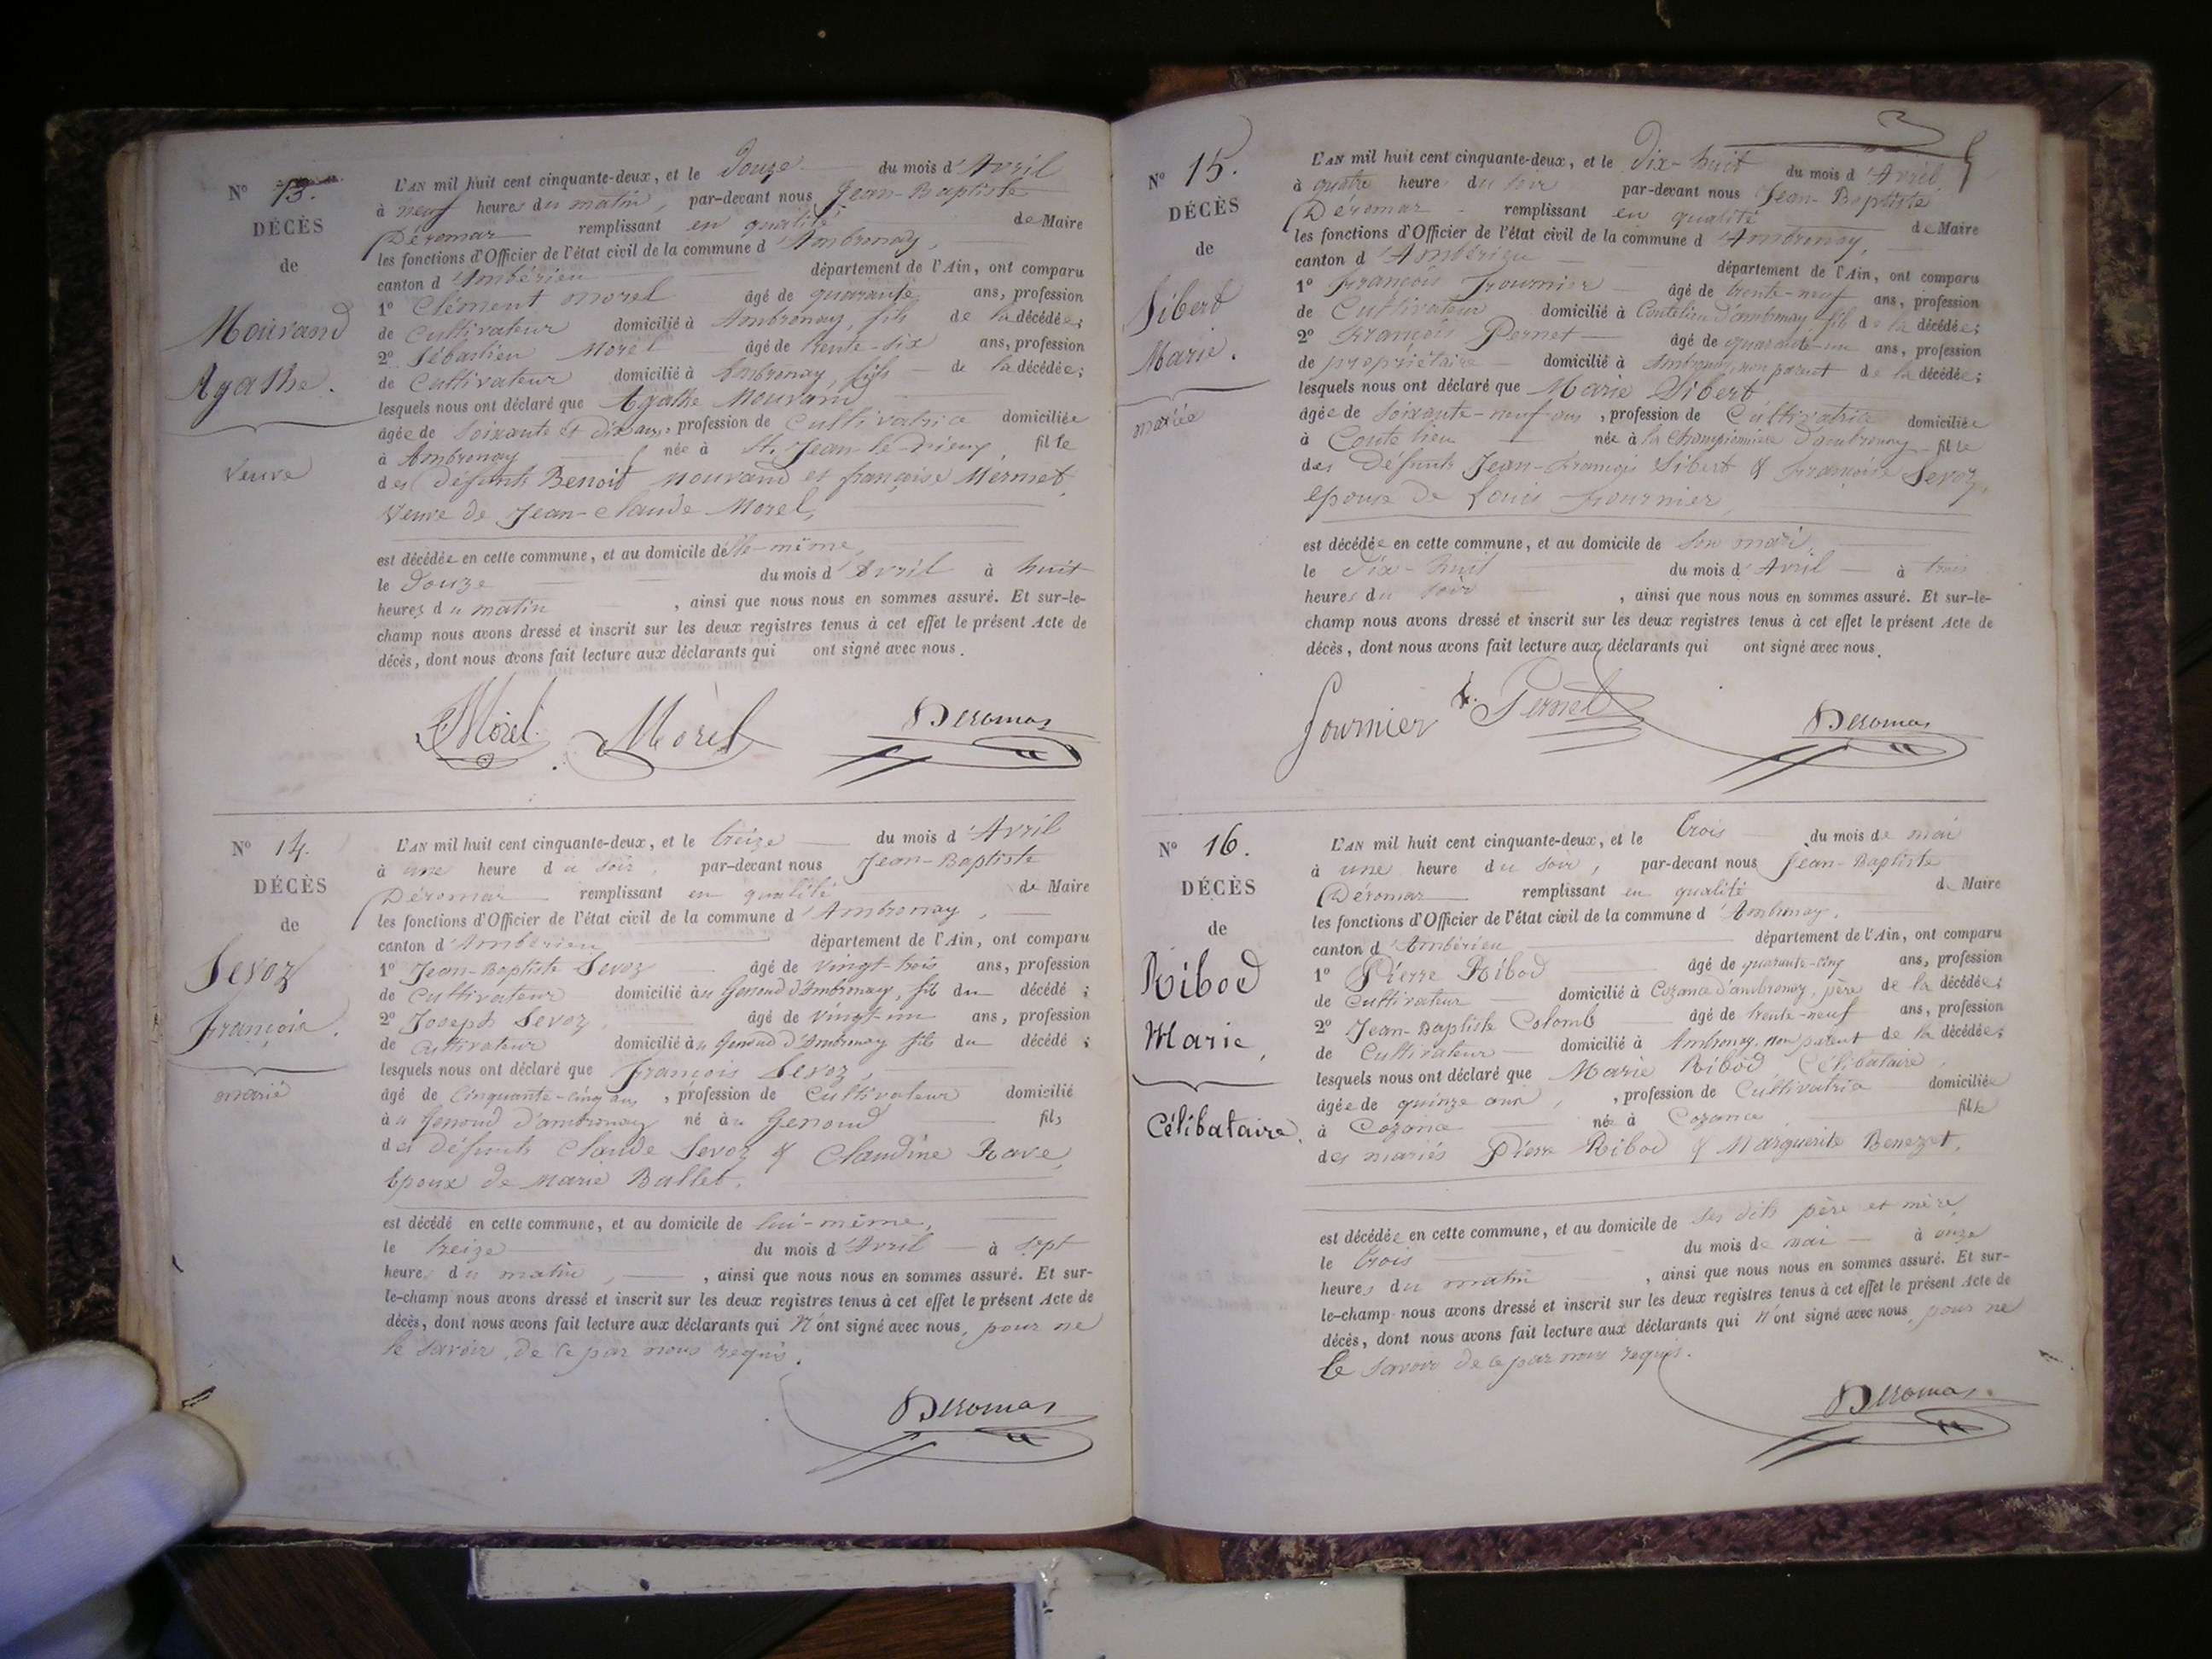 Nº 13.
DÉCÈS
de
Mouvand
Agathe.
veuve
L'AN mil huit cent cinquante-deux, et le Douze du mois d'Avril
à neuf heures du matin, par-devant nous Jean-Baptiste
Déromas remplissant en qualité de Maire
les fonctions d'Officier de l'état civil de la commune d'Ambronay,
canton d'Ambérieu département de l'Ain, ont comparu
1º Clément Morel âgé de quarante ans, profession
de Cultivateur domicilié à Ambronay, fils de la décédée;
2º Sébastien Morel âgé de trente-six ans, profession
de Cultivateur domicilié à Ambronay, fils de la décédée;
lesquels nous ont déclaré que Agathe Mouvand
âgée de soixante et dix ans, profession de Cultivatrice domiciliée
à Ambronay née à St. Jean-le-Vieux, fille
des défunts Benoit mouvand et françoise Mermet,
veuve de Jean-Claude Morel,
est décédée en cette commune, et au domicile d'elle-même,
le Douze du mois d'Avril à huit
heures du matin, ainsi que nous nous en sommes assuré. Et sur-le-
champ nous avons dressé et inscrit sur les deux registres tenus à cet effet le présent Acte de
décès, dont nous avons fait lecture aux déclarants qui ont signé avec nous.
Morel Morel Deromas
Nº 14.
DÉCÈS
de
Sevoz
François.
marié
L'AN mil huit cent cinquante-deux, et le treize du mois d'Avril
à une heure du soir, par-devant nous Jean-Baptiste
Déromas remplissant en qualité de Maire
les fonctions d'Officier de l'état civil de la commune d'Ambronay,
canton d'Ambérieu département de l'Ain, ont comparu
1º Jean-Baptiste Sevoz âgé de vingt-trois ans, profession
de Cultivateur domicilié au Genoud d'Ambronay, fils du décédé;
2º Joseph Sevoz, âgé de vingt-un ans, profession
de Cultivateur domicilié au Genoud d'Ambronay fils du décédé;
lesquels nous ont déclaré que François Sevoz,
âgé de Cinquante-cinq ans, profession de Cultivateur domicilié
à u Genoud d'ambronay né au Genoud fils
des défunts Claude Sevoz & Claudine Rave,
Epoux de Marie Ballet,
est décédé en cette commune, et au domicile de lui-même,
le treize du mois d'Avril à sept
heures du matin, ainsi que nous nous en sommes assuré. Et sur-
le-champ nous avons dressé et inscrit sur les deux registres tenus à cet effet le présent Acte de
décès, dont nous avons fait lecture aux déclarants qui n'ont signé avec nous, pour ne
le savoir, de ce par nous requis.
Deromas
Nº 15.
DÉCÈS
de
Sibert
Marie.
mariée
L'AN mil huit cent cinquante-deux, et le Dix-huit du mois d'Avril
à quatre heures du soir par-devant nous Jean-Baptiste
Déromas remplissant en qualité de Maire
les fonctions d'Officier de l'état civil de la commune d'Ambronay,
canton d'Ambérieu département de l'Ain, ont comparu
1º François Fournier âgé de trente-neuf ans, profession
de Cultivateur domicilié à Coutelieu d'ambronay, fils de la décédée;
2º François Pernet âgé de quarante-un ans, profession
de propriétaire domicilié à Ambronay, non parent de la décédée;
lesquels nous ont déclaré que Marie Sibert
âgée de soixante-neuf ans, profession de Cultivatrice domiciliée
à Coutelieu née à la Championnière d'ambronay fille
des défunts Jean-François Sibert & Françoise Sevoz,
épouse de Louis Fournier,
est décédée en cette commune, et au domicile de son mari,
le Dix-huit du mois d'Avril à trois
heures du soir, ainsi que nous nous en sommes assuré. Et sur-le-
champ nous avons dressé et inscrit sur les deux registres tenus à cet effet le présent Acte de
décès, dont nous avons fait lecture aux déclarants qui ont signé avec nous.
Fournier f. Pernet Deromas
Nº 16.
DÉCÈS
de
Ribod
Marie,
Célibataire.
L'AN mil huit cent cinquante-deux, et le trois du mois de mai
à une heure du soir, par-devant nous Jean-Baptiste
Déromas remplissant en qualité de Maire
les fonctions d'Officier de l'état civil de la commune d'Ambronay,
canton d'Ambérieu département de l'Ain, ont comparu
1º Pierre Ribod âgé de quarante-cinq ans, profession
de Cultivateur domicilié à Cozance d'ambronay, père de la décédée;
2º Jean-Baptiste Colomb âgé de trente-neuf ans, profession
de Cultivateur domicilié à Ambronay, non parent de la décédée;
lesquels nous ont déclaré que Marie Ribod Célibataire,
âgée de quinze ans, profession de Cultivatrice domiciliée
à Cozance née à Cozance fille
des mariés Pierre Ribod & Marguerite Benezet,
est décédée en cette commune, et au domicile de ses dits père et mère
le trois du mois de mai à onze
heures du matin, ainsi que nous nous en sommes assuré. Et sur-
le-champ nous avons dressé et inscrit sur les deux registres tenus à cet effet le présent Acte de
décès, dont nous avons fait lecture aux déclarants qui n'ont signé avec nous, pour ne
le savoir de ce par nous requis.
Deromas.